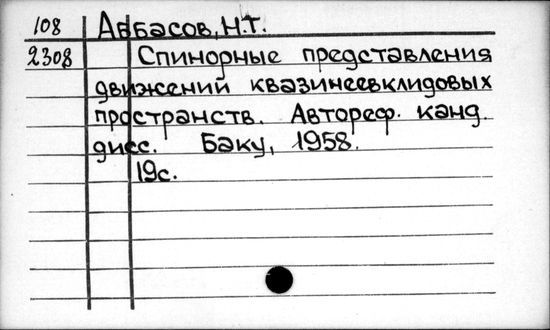 108 Аббасов, Н.Т.
2308 Спинорные представления
движений квазинеевклидовых
пространств. Автореф. канд.
дисс. Баку, 1958.
19с.